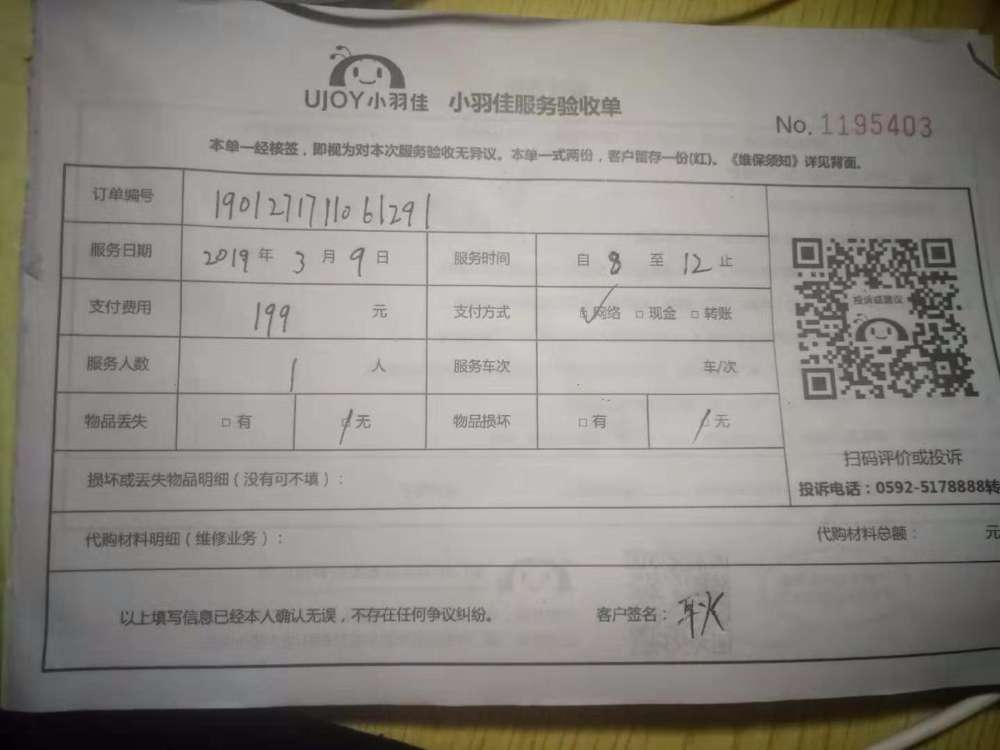 UJOY小羽佳 小羽佳服务验收单
No. 1195403
本单一经核签，即视为对本次服务验收无异议。本单一式两份，客户留存一份(红)。《维保须知》详见背面。
订单编号 190127171106 1291
服务日期 2019 年 3 月 9 日 服务时间 自 8 至 12 止
支付费用 199 元 支付方式 ☑网络 □现金 □转账
投诉或建议
服务人数 1 人 服务车次 车/次
物品丢失 □有 ☑无 物品损坏 □有 ☑无
扫码评价或投诉
损坏或丢失物品明细（没有可不填）：
投诉电话：0592-5178888转
代购材料明细（维修业务）： 代购材料总额： 元
以上填写信息已经本人确认无误，不存在任何争议纠纷。 客户签名：